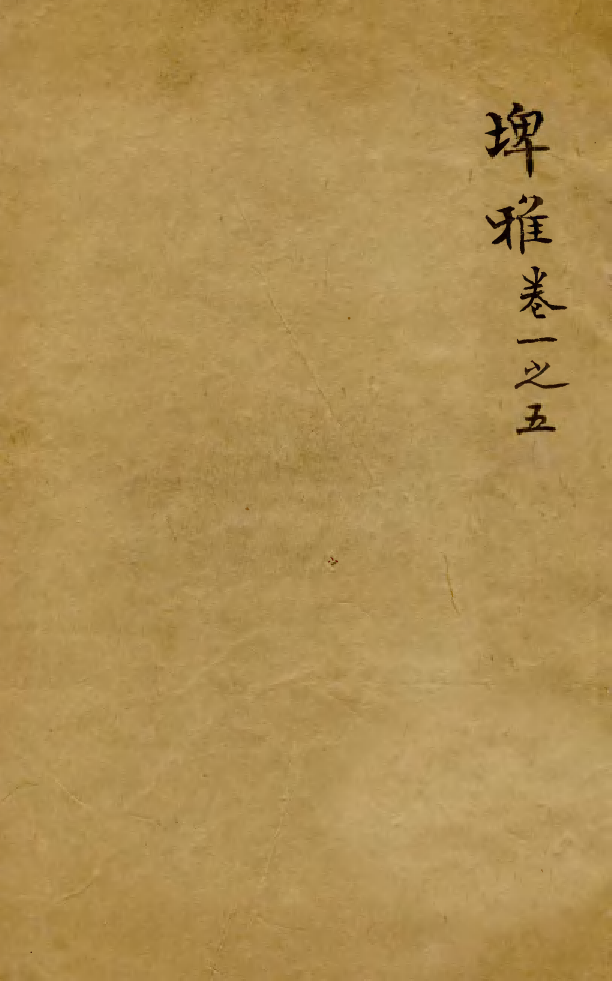 埤雅卷一之五